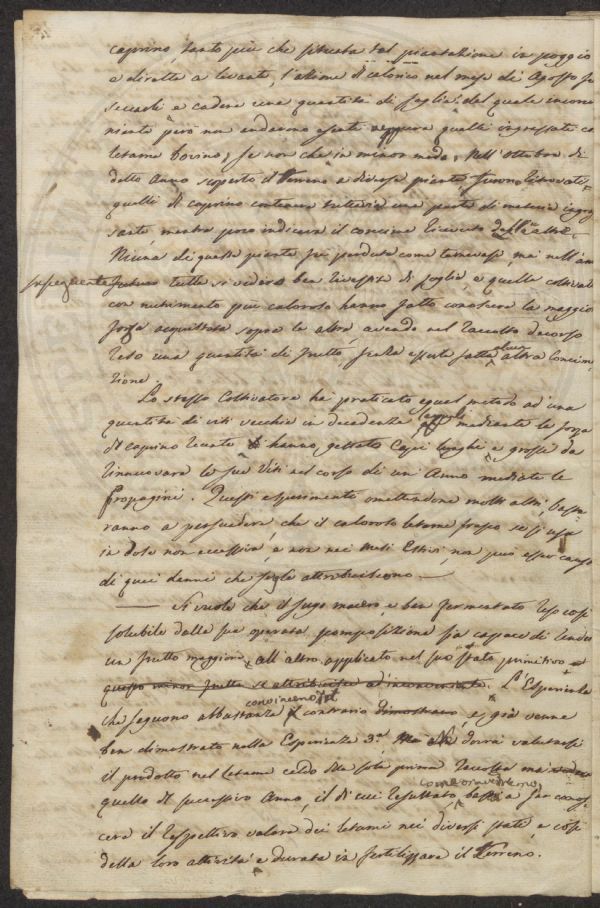 caprino, tanto più che situata tal piantazione in poggio
e diretta a levante, l'azione del calorico nel mese di Agosto fa
seccarli e cadere una quantità di foglie: del quale inconve
niente però non anderono esenti neppure quelli ingrassati co
letame bovino, se non che in minor modo. Nell'ottobre di
detto anno scoperto il Terreno a diverse piante, furono ritrovati
quelli di caprino contenere tuttavia una parte di materia ingras
sante, mentre poco indicava il concime ricevuto dalle altre.
Niuna di queste piante fu perduta come temevasi, mai nell'anno
susseguente tutte si videro ben rivestite di foglie, e quelle coltivate
con nutrimento più caloroso hanno fatto conoscere la maggior
forza acquistata sopra le altre, avendo nel raccolto decorso
reso una quantità di frutto, senza essere fatta alcun altra concima
zione.
Lo stesso Coltivatore ha praticato egual metodo ad una
quantità di viti vecchie in decadenza, le quali mediante la forza
di caprino recente hanno gettato Capi lunghi e grossi da
rinnuovare le sue Viti nel corso di un Anno mediante le
Propagini. Questi esperimenti omettendone molti altri, baste
ranno a persuadere, che il caloroso letame fresco se si usa
in dose non eccessiva, e non nei Mesi Estivi, non può esser causa
di quei danni che se gli attribuiscono —
— Si vuole che il sugo macero e ben fermentato reso così
solubile dalla sua operata scomposizione sia capace di render
un frutto maggiore, all'altro applicato nel suo stato primitivo e
questo minor frutto si attribuisce ad inconveniente. L'Esperienze
che seguono abbastanza convincono del contrario dimostrano, e già venne
ben dimostrato nella Esperienza 3.a Nè dovrà valutarsi
il prodotto nel letame caldo dalla sola prima raccolta ma
quello di successivo Anno, il di cui resultato basta a far conos
cere il respettivo valore dei letami nei diversi stati, e così
della loro attività e durata in fertilizzare il Terreno.